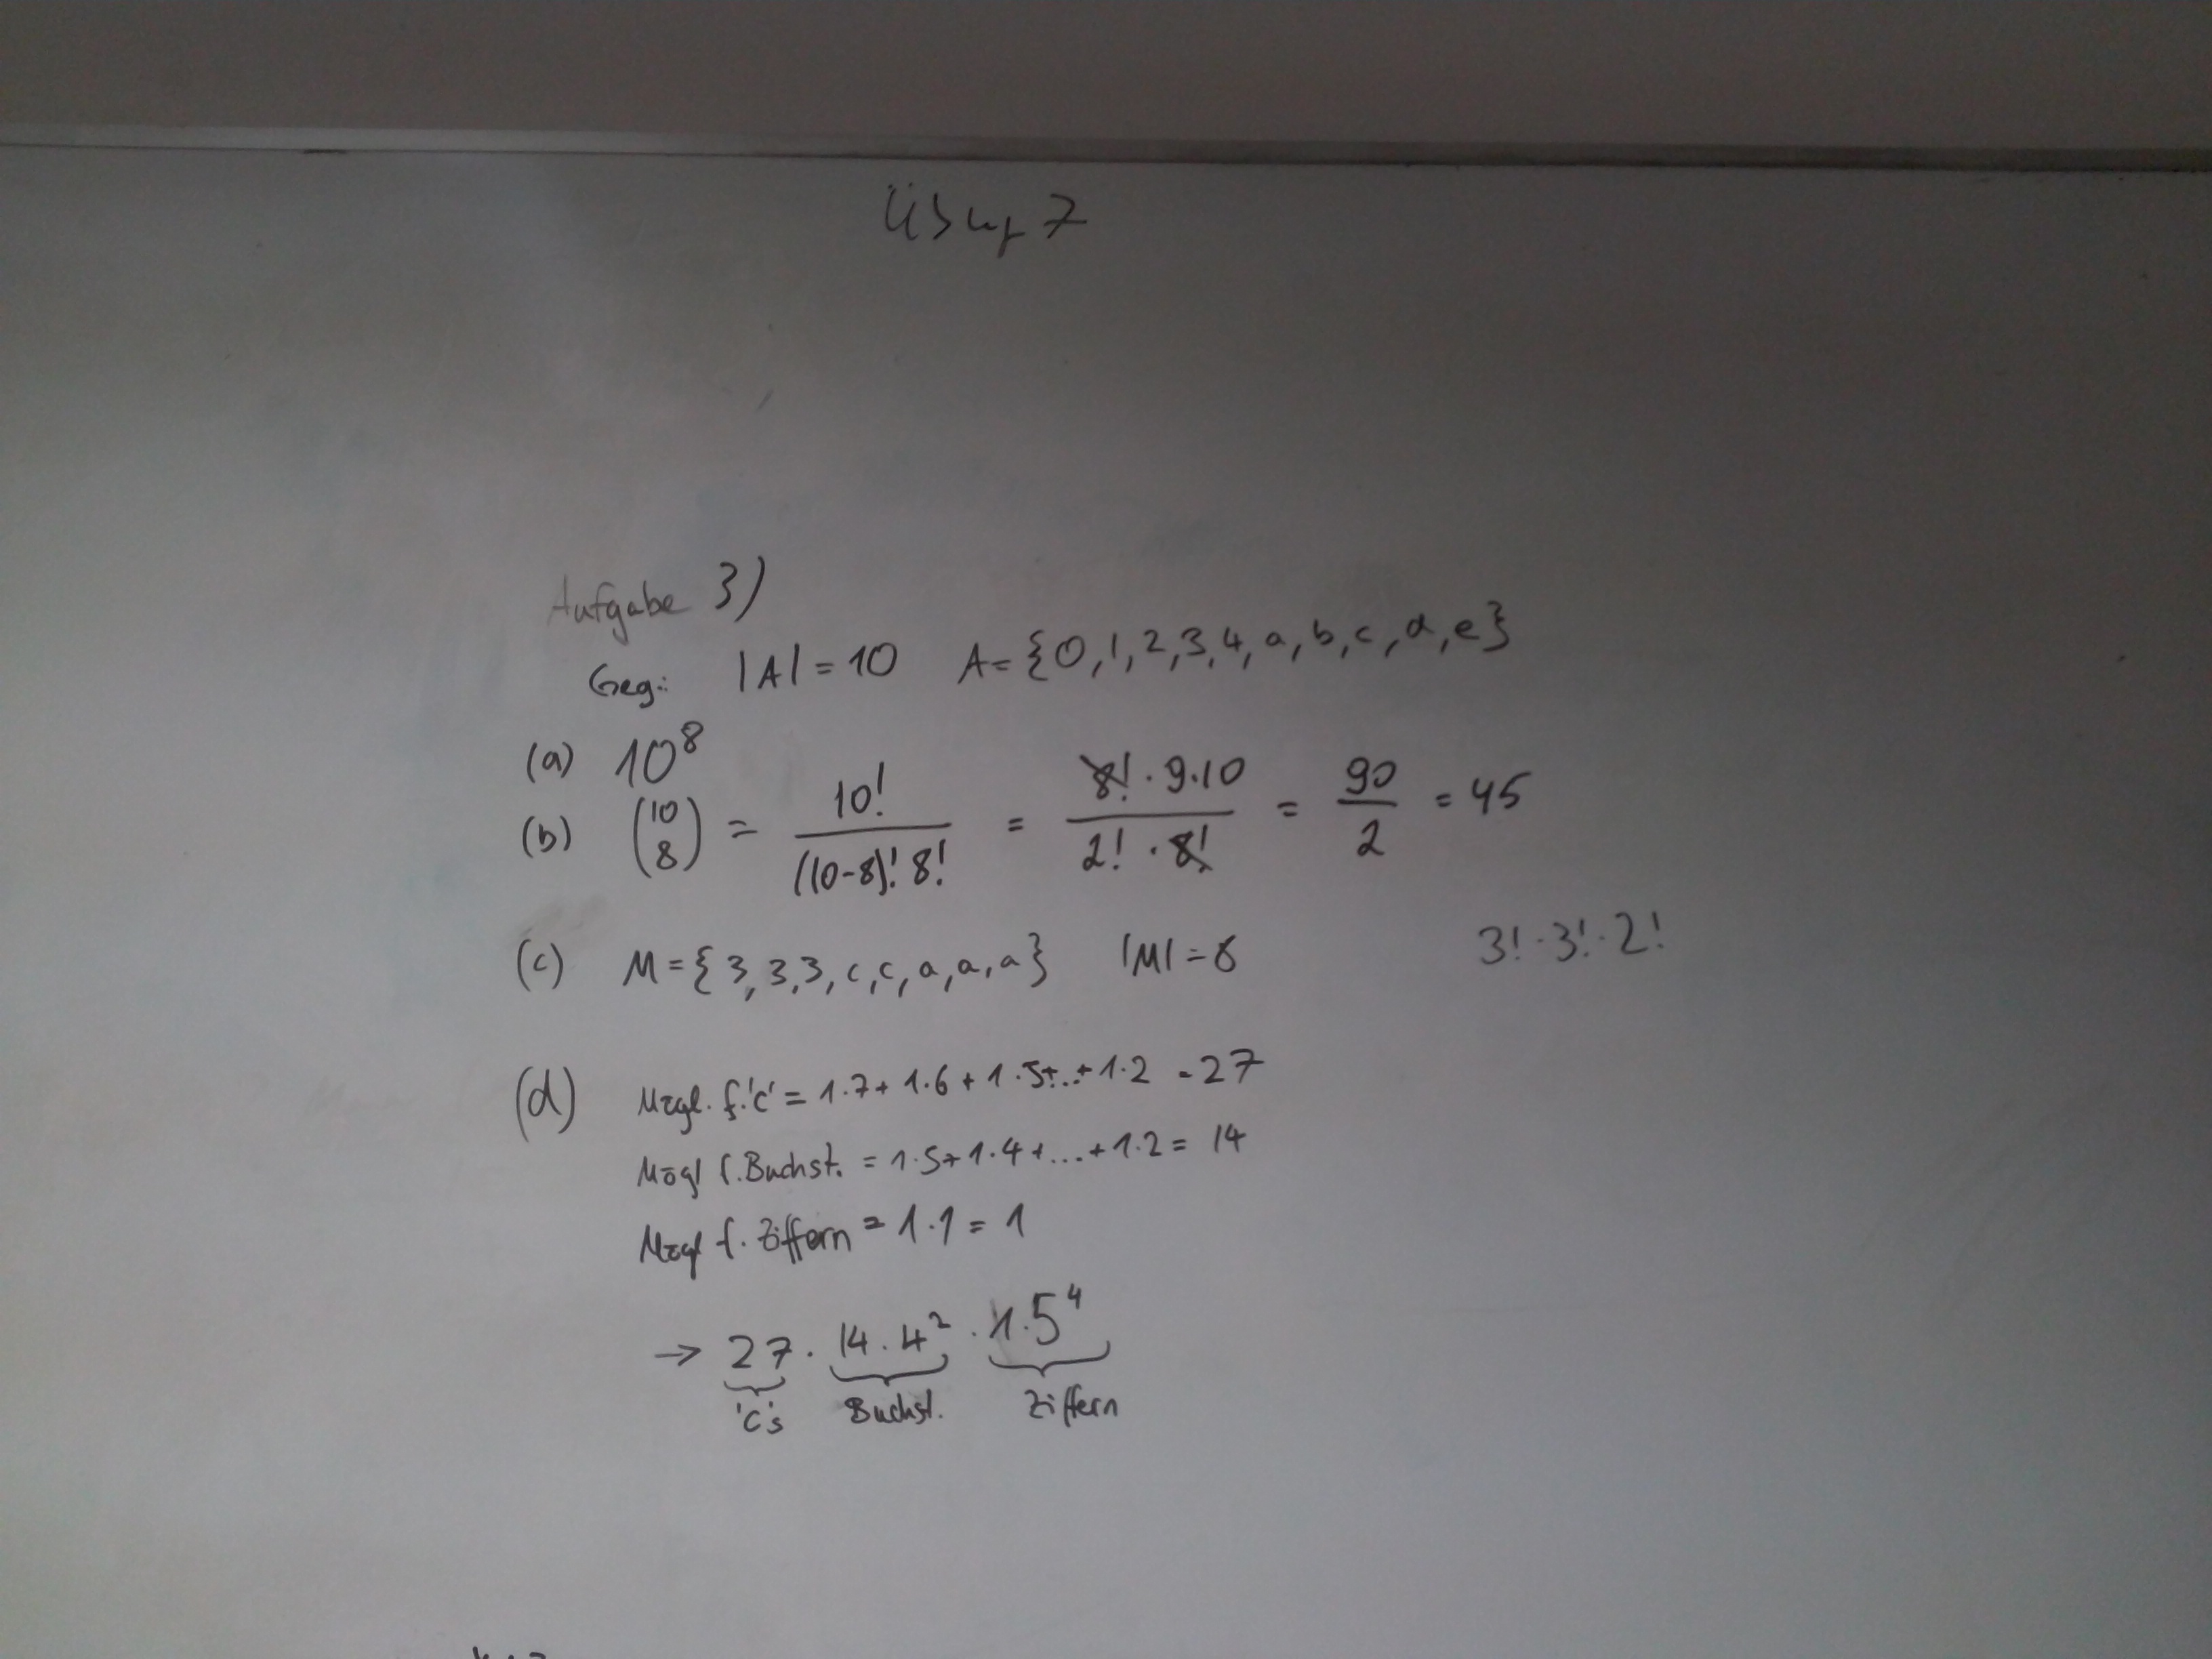 Übung 7
Aufgabe 3)
Geg.: |A| = 10 A = {0,1,2,3,4,a,b,c,d,e}
(a) 10⁸
(b) (10 8) = 10! / (10-8)! 8! = 8! · 9 · 10 / 2! · 8! = 90 / 2 = 45
(c) M = {3,3,3,c,c,a,a,a} |M| = 8 3! · 3! · 2!
(d) Mögl. f. 'c' = 1·7 + 1·6 + 1·5 + ... + 1·2 = 27
Mögl f. Buchst. = 1·5 + 1·4 + ... + 1·2 = 14
Mögl f. Ziffern = 1·1 = 1
→ 27 · 14 · 4² · 1 · 5⁴
'c's Buchst. Ziffern